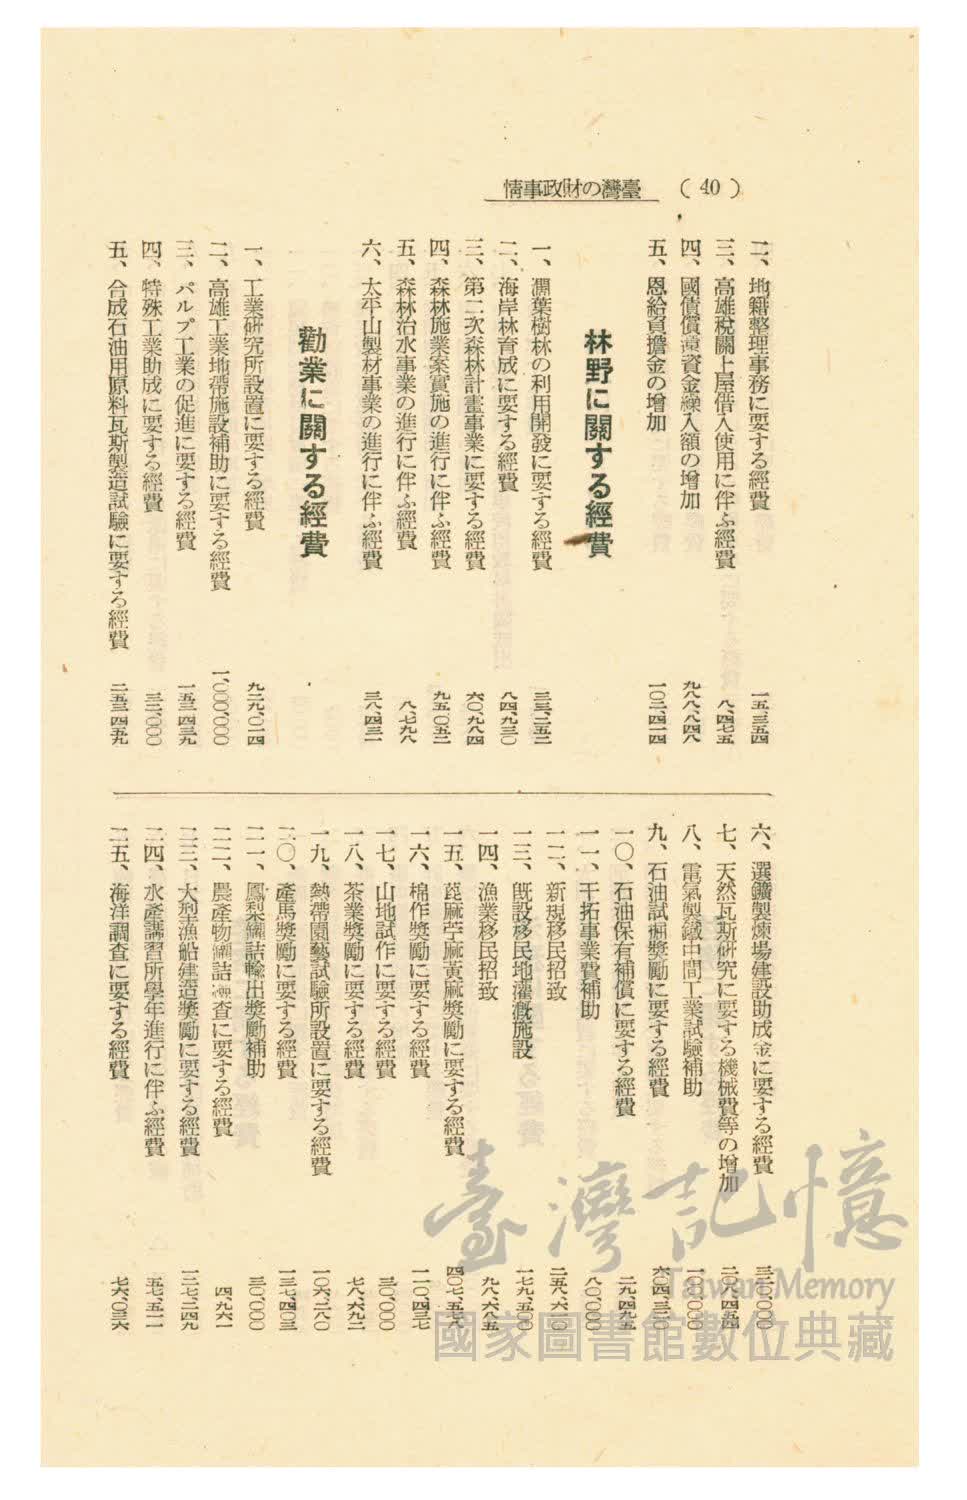 (40) 臺灣の財政事情
二、地籍整理事務に要する經費 一五、三五四
三、高雄稅關上屋借入使用に伴ふ經費 八、四七五
四、國債償還資金繰入額の增加 九八八、八四八
五、恩給負擔金の增加 一〇二、四一四
林野に關する經費
一、濶葉樹林の利用開發に要する經費 三三、二五二
二、海岸林育成に要する經費 八四、九三〇
三、第二次森林計畫事業に要する經費 六〇、九八四
四、森林施業案實施の進行に伴ふ經費 九五、〇五二
五、森林治水事業の進行に伴ふ經費 八、七九八
六、太平山製材事業の進行に伴ふ經費 三八、四三一
勸業に關する經費
一、工業硏究所設置に要する經費 九二九、〇一四
二、高雄工業地帶施設補助に要する經費 一、〇〇〇、〇〇〇
三、パルプ工業の促進に要する經費 一五三、四三九
四、特殊工業助成に要する經費 三三、〇〇〇
五、合成石油用原料瓦斯製造試驗に要する經費 二五三、四五九
六、選鑛製煉場建設助成金に要する經費 三二〇、〇〇〇
七、天然瓦斯硏究に要する機械費等の增加 二〇八、四五四
八、電氣製鐵中間工業試驗補助 一〇〇、〇〇〇
九、石油試掘獎勵に要する經費 六〇四、三三〇
一〇、石油保有補償に要する經費 二九、四九五
一一、干拓事業費補助 八〇、〇〇〇
一二、新規移民招致 二五八、六一〇
一三、旣設移民地灌漑施設 一七九、五〇〇
一四、漁業移民招致 九八、六八五
一五、萞麻苧麻黃麻獎勵に要する經費 四〇七、五七八
一六、棉作獎勵に要する經費 一一〇、四三七
一七、山地試作に要する經費 三〇、〇〇〇
一八、茶業獎勵に要する經費 七八、六九二
一九、熱帶園藝試驗所設置に要する經費 一〇六、二八〇
二〇、產馬獎勵に要する經費 一三七、四〇三
二一、鳳梨罐詰輸出獎勵補助 三〇、〇〇〇
二二、農產物罐詰檢查に要する經費 四、九六一
二三、大型漁船建造獎勵に要する經費 一二七、二四九
二四、水產講習所學年進行に伴ふ經費 五七、五一一
二五、海洋調查に要する經費 七六、〇三六
臺灣記憶
Taiwan Memory
國家圖書館數位典藏